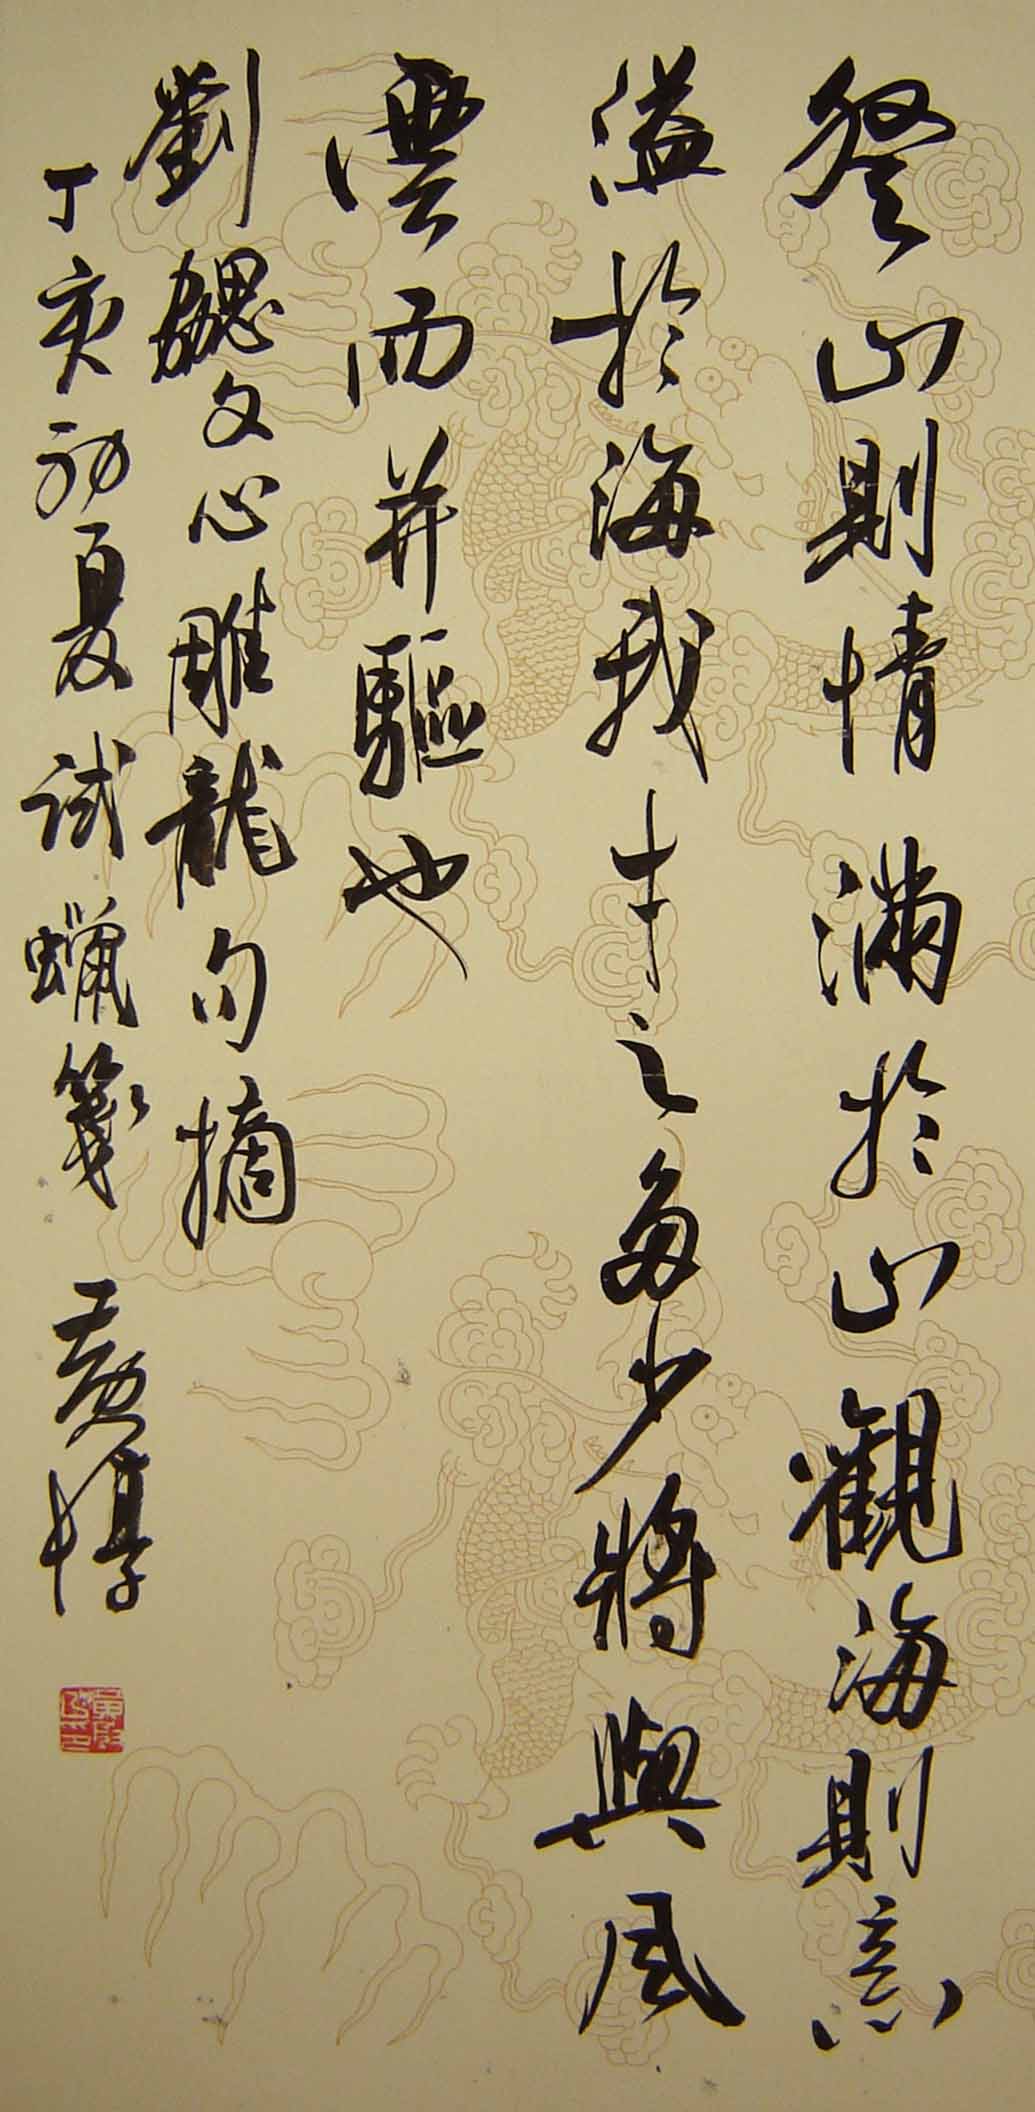 登山則情滿於山觀海則意
溢於海我才之多少將與風
雲而并驅也
劉勰文心雕龍句摘
丁亥初夏試蠟箋 黃惇